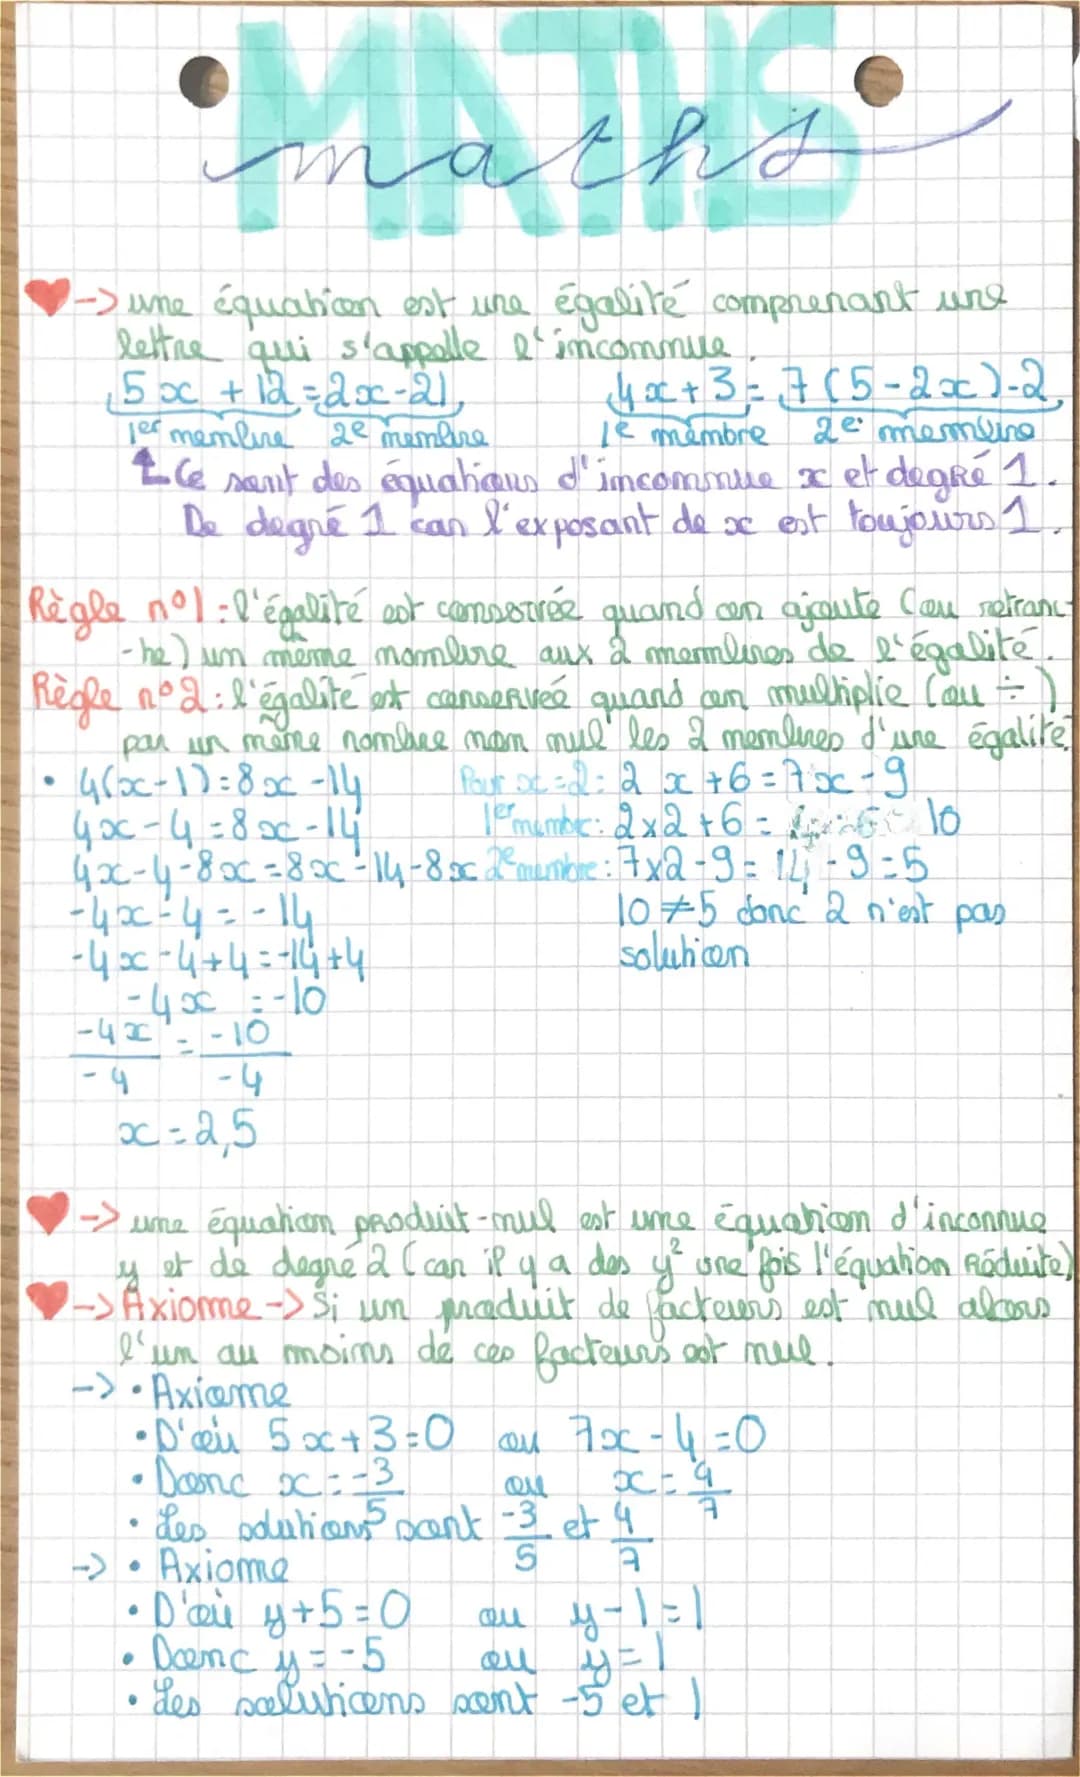 MATHS
maths
-> une équation est une égalité comprenant une
lettre qui s'appelle l'inconnue.
5x + 12 = 2x - 21, 4x + 3 = 7(5 - 2x) - 2,
1er membre 2e membre 1e membre 2e membre
Ce sont des équations d'inconnue x et degré 1.
De degré 1 car l'exposant de x est toujours 1.
Règle n°1 : l'égalité est conservée quand on ajoute (ou retranc-
-he) un même nombre aux 2 membres de l'égalité.
Règle n°2 : l'égalité est conservée quand on multiplie (ou ÷)
par un même nombre non nul les 2 membres d'une égalité.
• 4(x-1) = 8x - 14 Pour x = 2 : 2x + 6 = 7x - 9
4x - 4 = 8x - 14 1er membre : 2 x 2 + 6 = 10
4x - 4 - 8x = 8x - 14 - 8x 2e membre : 7 x 2 - 9 = 14 - 9 = 5
-4x - 4 = -14 10 ≠ 5 donc 2 n'est pas
-4x - 4 + 4 = -14 + 4 solution
-4x = -10
-4x = -10
-4 -4
x = 2,5
-> une équation produit-nul est une équation d'inconnue
y et de degré 2 (car il y a des y² une fois l'équation Réduite)
-> Axiome -> Si un produit de facteurs est nul alors
l'un au moins de ces facteurs est nul.
-> • Axiome
• D'où 5x + 3 = 0 ou 7x - 4 = 0
• Donc x = -3/5 ou x = 4/7
• Les solutions sont -3/5 et 4/7
-> • Axiome
• D'où y + 5 = 0 ou y - 1 = 1
• Donc y = -5 ou y = 1
• Les solutions sont -5 et 1